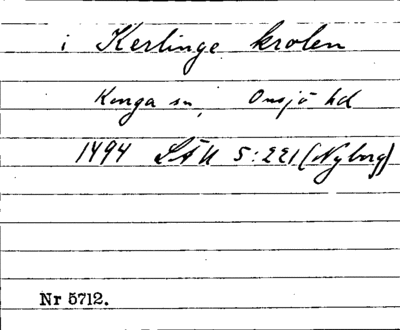 i Kerlinge krolen
Konga sn, Onsjö hd
1494 LÄU 5:221 (Nyborg)
Nr 5712.